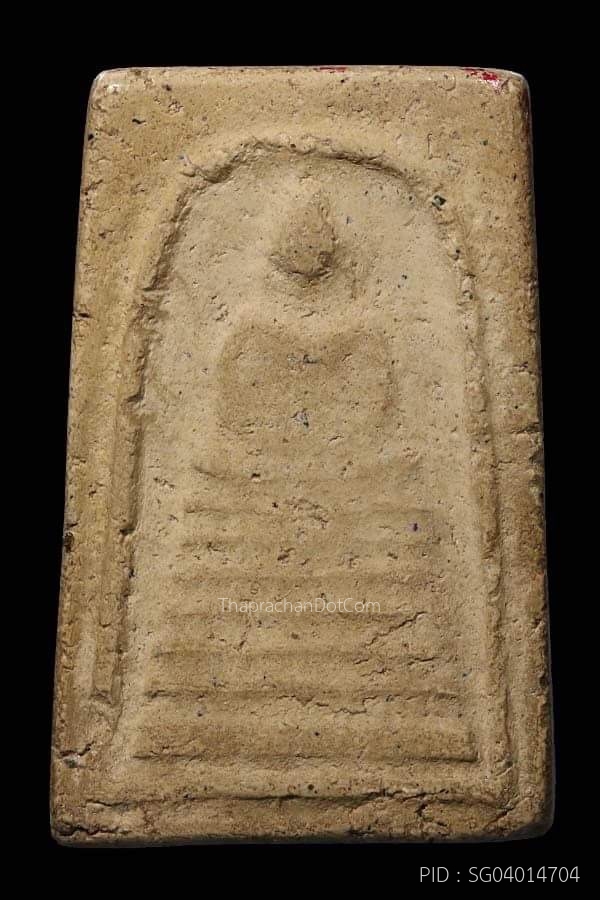 ThaprachanDotCom
PID : SG04014704